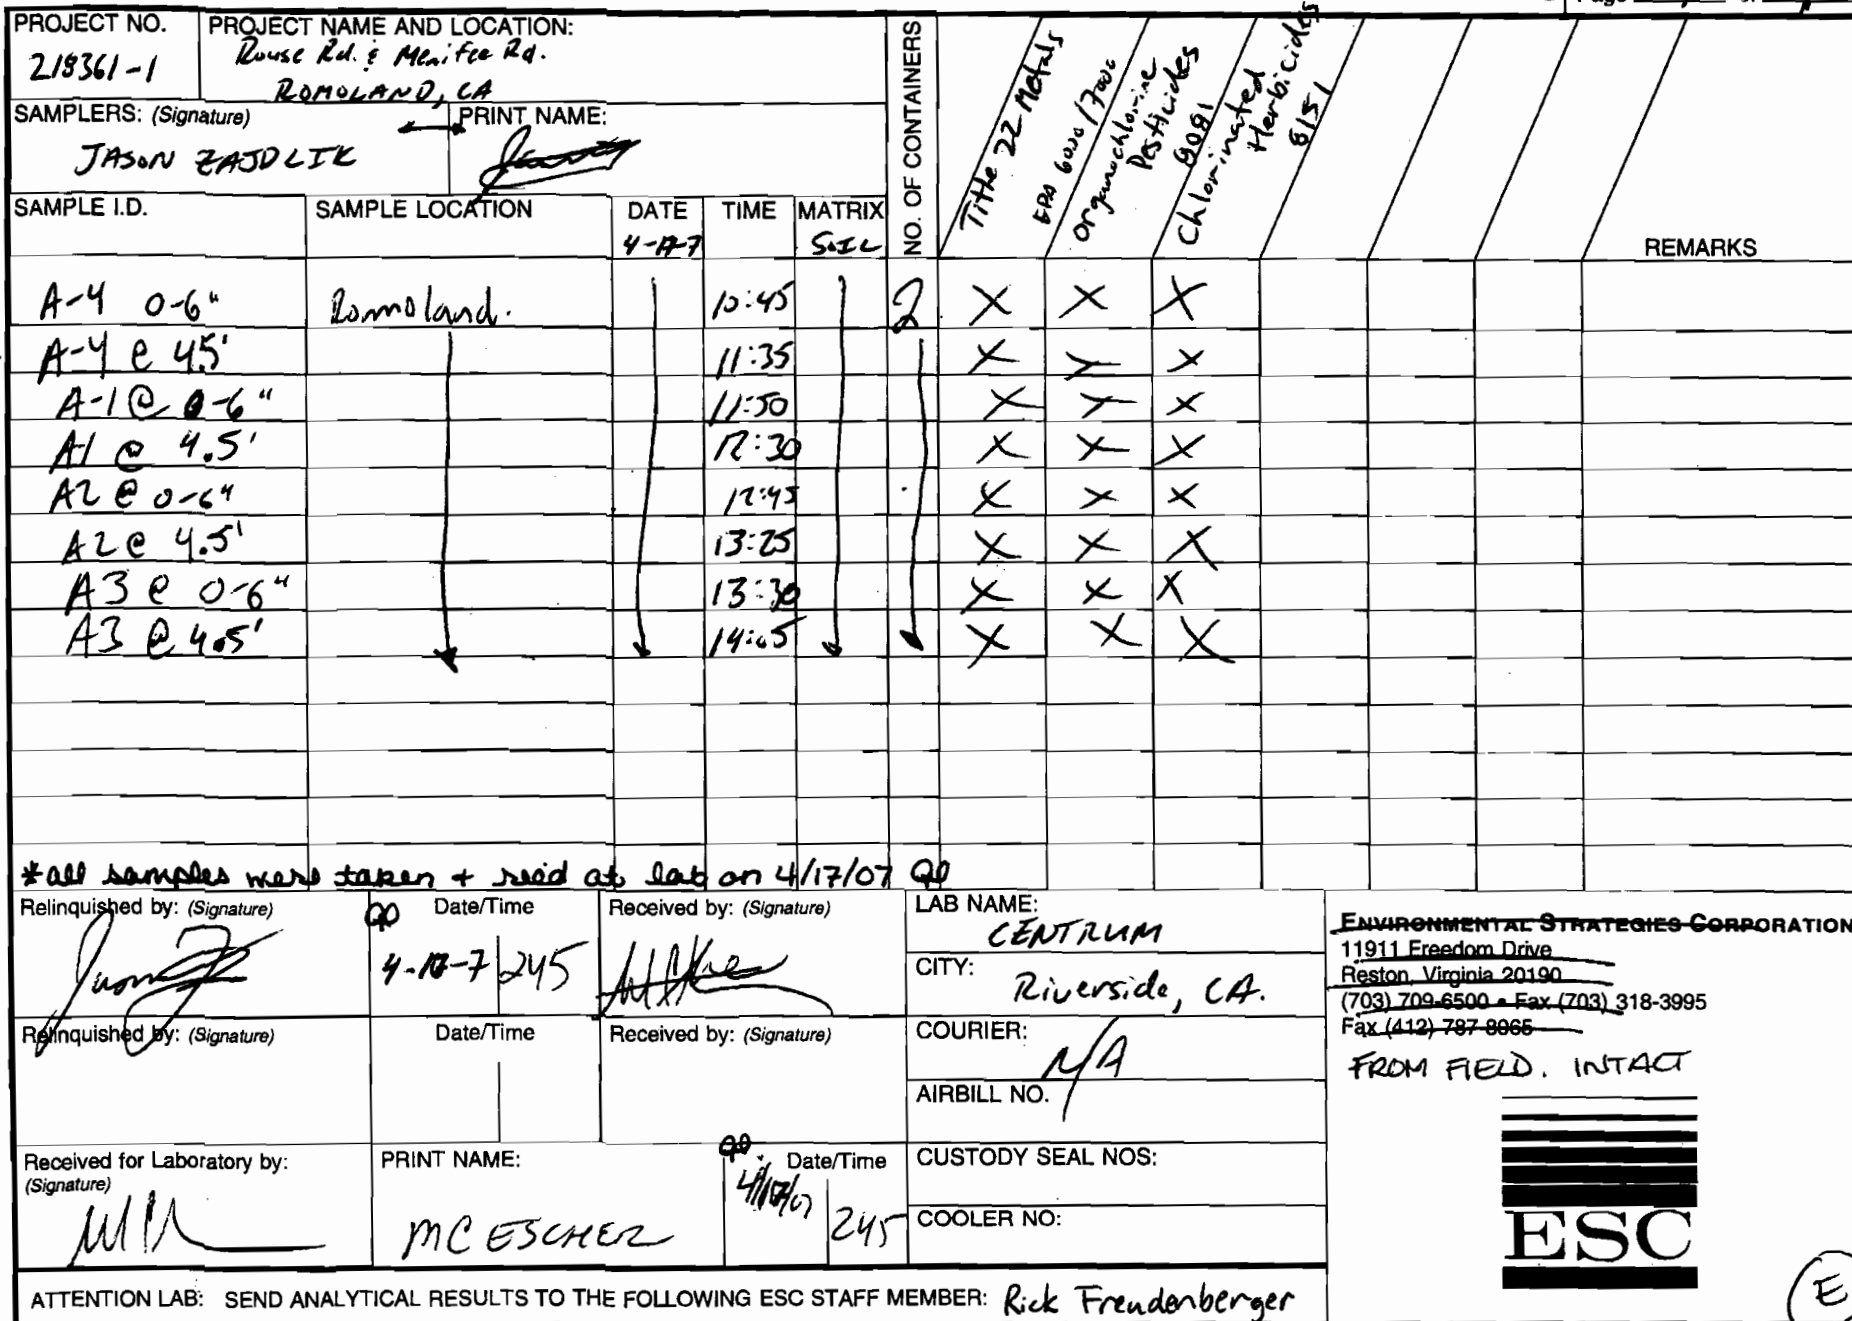 Page
PROJECT NO.
218361-1
PROJECT NAME AND LOCATION:
Rouse Rd. & Menifee Rd.
ROMOLAND, CA
SAMPLERS: (Signature)
JASON ZAJDLIK
PRINT NAME:
NO. OF CONTAINERS
Title 22 Metals
EPA 6000/7000
Organochlorine
Pesticides
8081
Chlorinated
Herbicides
8151
SAMPLE I.D. SAMPLE LOCATION DATE TIME MATRIX REMARKS
4-17-7 SOIL
A-4 0-6" Romoland. 10:45 2 X X X
A-4 @ 4.5' 11:35 X X X
A-1 @ 0-6" 11:50 X X X
A1 @ 4.5' 12:30 X X X
A2 @ 0-6" 12:45 X X X
A2 @ 4.5' 13:25 X X X
A3 @ 0-6" 13:30 X X X
A3 @ 4.5' 14:05 X X X
*all samples were taken + rec'd at lab on 4/17/07
Relinquished by: (Signature) Date/Time Received by: (Signature)
4-17-7 245
Relinquished by: (Signature) Date/Time Received by: (Signature)
Received for Laboratory by:
(Signature)
PRINT NAME:
MC ESCHER
Date/Time
4/17/07 245
LAB NAME:
CENTRUM
CITY:
Riverside, CA.
COURIER:
N/A
AIRBILL NO.
CUSTODY SEAL NOS:
COOLER NO:
ENVIRONMENTAL STRATEGIES CORPORATION
11911 Freedom Drive
Reston, Virginia 20190
(703) 709-6500 • Fax (703) 318-3995
Fax (412) 787-8065
FROM FIELD. INTACT
ESC
E
ATTENTION LAB: SEND ANALYTICAL RESULTS TO THE FOLLOWING ESC STAFF MEMBER: Rick Freudenberger